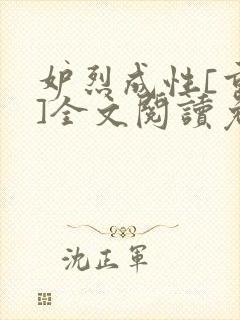 妒烈成性[重
]全文閱讀免
沈正軍